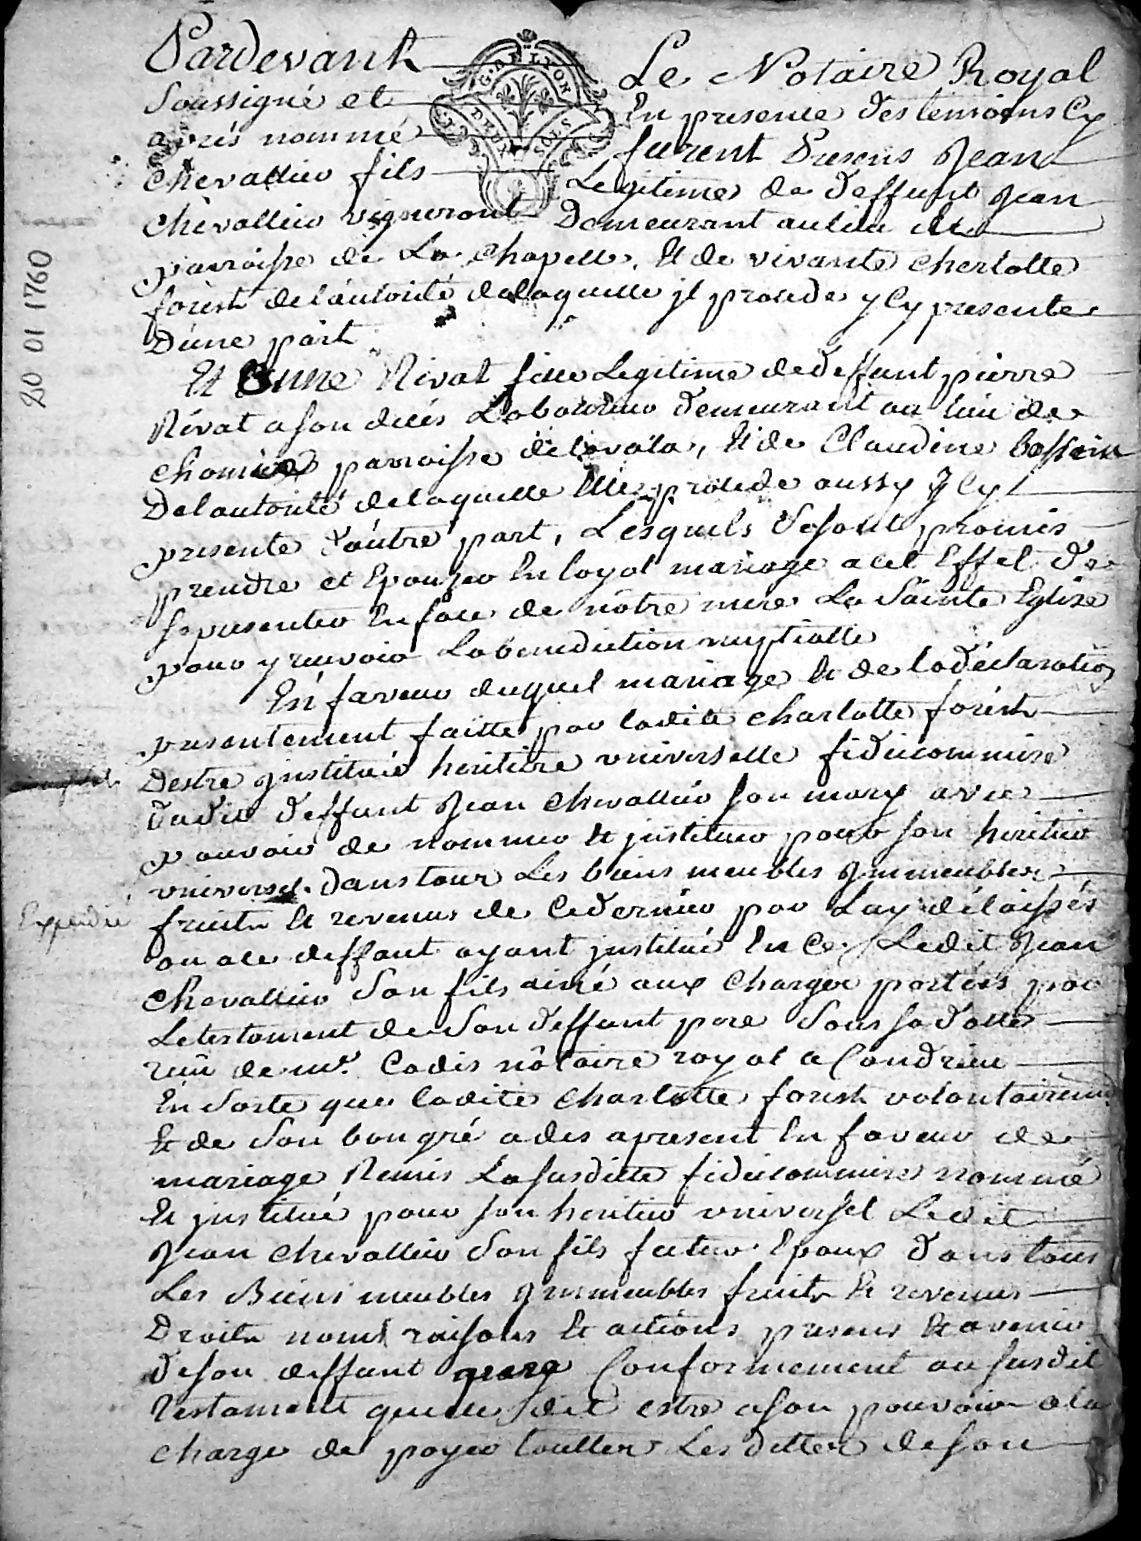 Pardevant Le Notaire Royal
Soussigné et En presence des temoins Cy
aprés nommé furent Presens Jean
Chevallier fils Legitime de deffunt Jean
Chevallier vigneront Demeurant au lieu de
parroisse de La Chapelle, Et de vivante Cherlotte
forest de l'autorité de laquelle jl procede jCy presente
D'une part
Et Anne Rivat fille Legitime de deffunt pierre
Rivat a son decés Laboureur demeurant au lieu de
parroisse de Lavala, Et de Claudine
De lautorité de laquelle Elle procede aussy jCy
presente d'autre part, Lesquels se sont promis
prendre et Epouzer En loyal mariage a cet Effet de
se presenter En face de nôtre mere La Sainte Eglize
pour y recevoir La benediction nuptialle
En faveur duquel mariage Et de la déclaration
presentement faitte par ladite Charlotte forest
Destre jnstituée heritiere universelle fideicommise
dudit deffunt Jean Chevallier son mary avec
pouvoir de nommer Et jnstituer pour son heritier
universel Dans tour Les biens meubles jmmeubles
fruits Et revenus de Ce dernier par Luy délaissés
ou a ce deffaut ayant jnstitué En Ce Ledit Jean
Chevallier Son fils ainé aux Charges portées par
Le testament de Son deffunt pere Sous sa datte
reçu de me. Cadis nôtaire royal a Condrieu
En Sorte que ladite Charlotte forest volontairement
Et de Son bon gré a des apresent En faveur de
mariage Remis La susditte fideicommise nommé
Et jnstitué pour son heritier universel Ledit
Jean Chevallier Son fils futur Epoux dans tous
Les Biens meubles jmmeubles fruits Et revenus
Droits noms raisons Et actions presens Et avenir
de son deffunt pere Conformement au susdit
Testament quelle dit estre a son pouvoir a la
charge de payer touttes Les dettes de son
Expedié
20 01 1760
G. DE LYON
DEUX SOLS